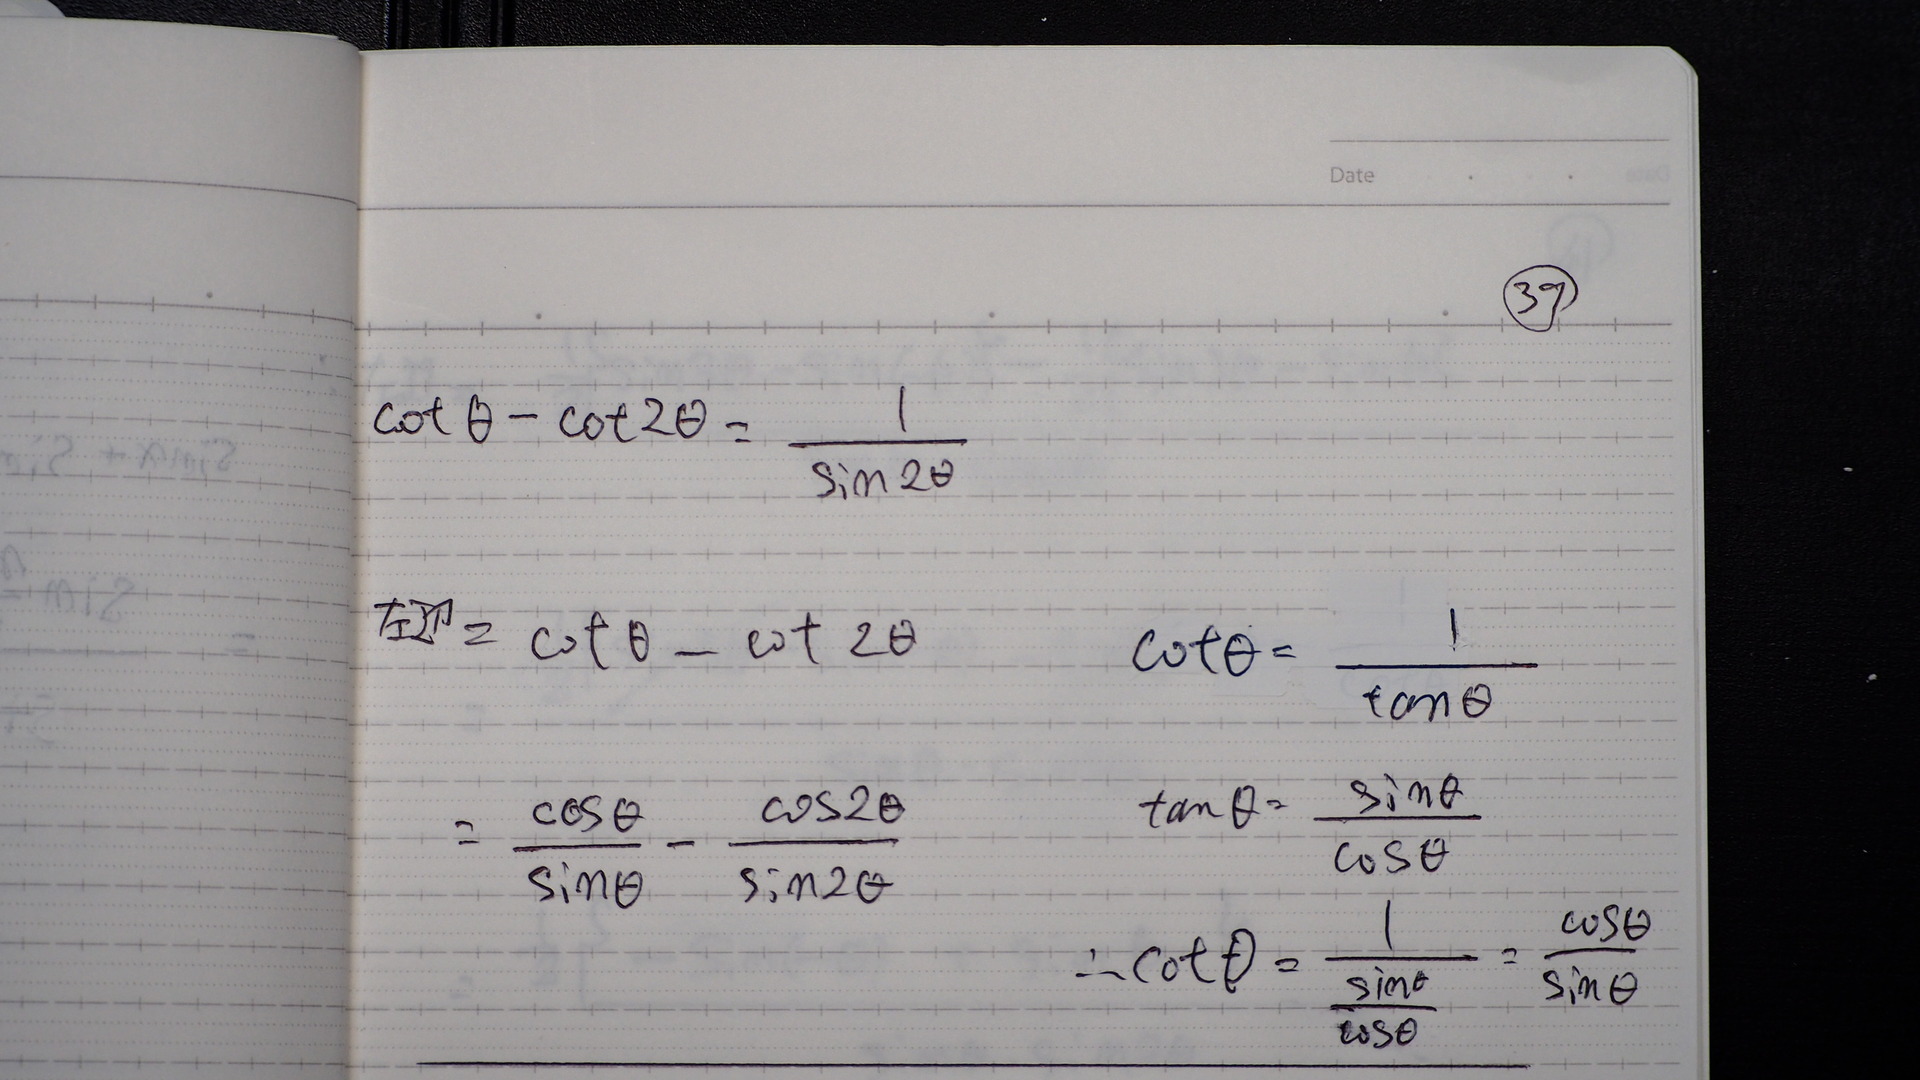 Date
39
cot θ - cot 2θ = 1/sin 2θ
左辺 = cot θ - cot 2θ
= cos θ/sin θ - cos 2θ/sin 2θ
cot θ = 1/tan θ
tan θ = sin θ/cos θ
∴ cot θ = 1/(sin θ/cos θ) = cos θ/sin θ